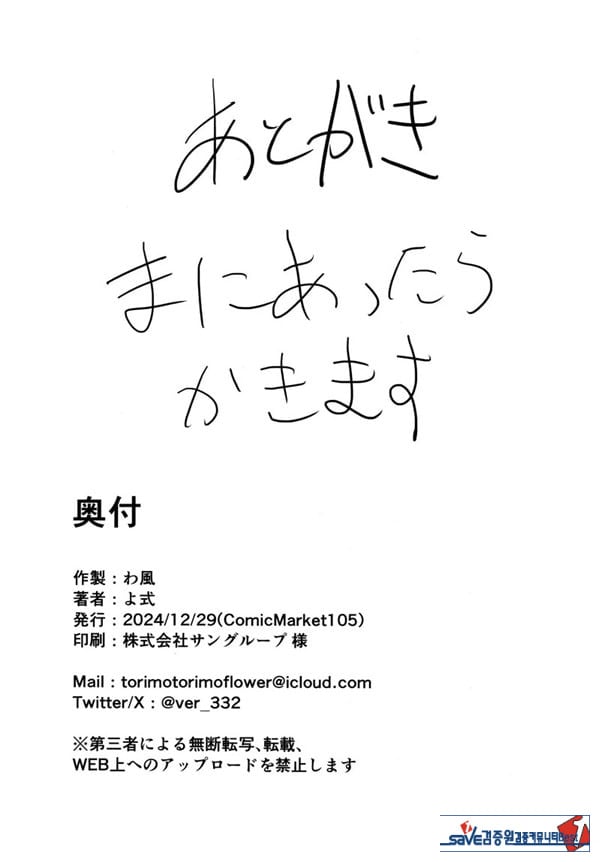 あとがき
まにあったら
かきます
奥付
作製：わ風
著者：よ式
発行：2024/12/29(ComicMarket105)
印刷：株式会社サングループ 様
Mail：torimotorimoflower@icloud.com
Twitter/X：@ver_332
※第三者による無断転写、転載、
WEB上へのアップロードを禁止します
SAVE검증원 검증커뮤니티Best